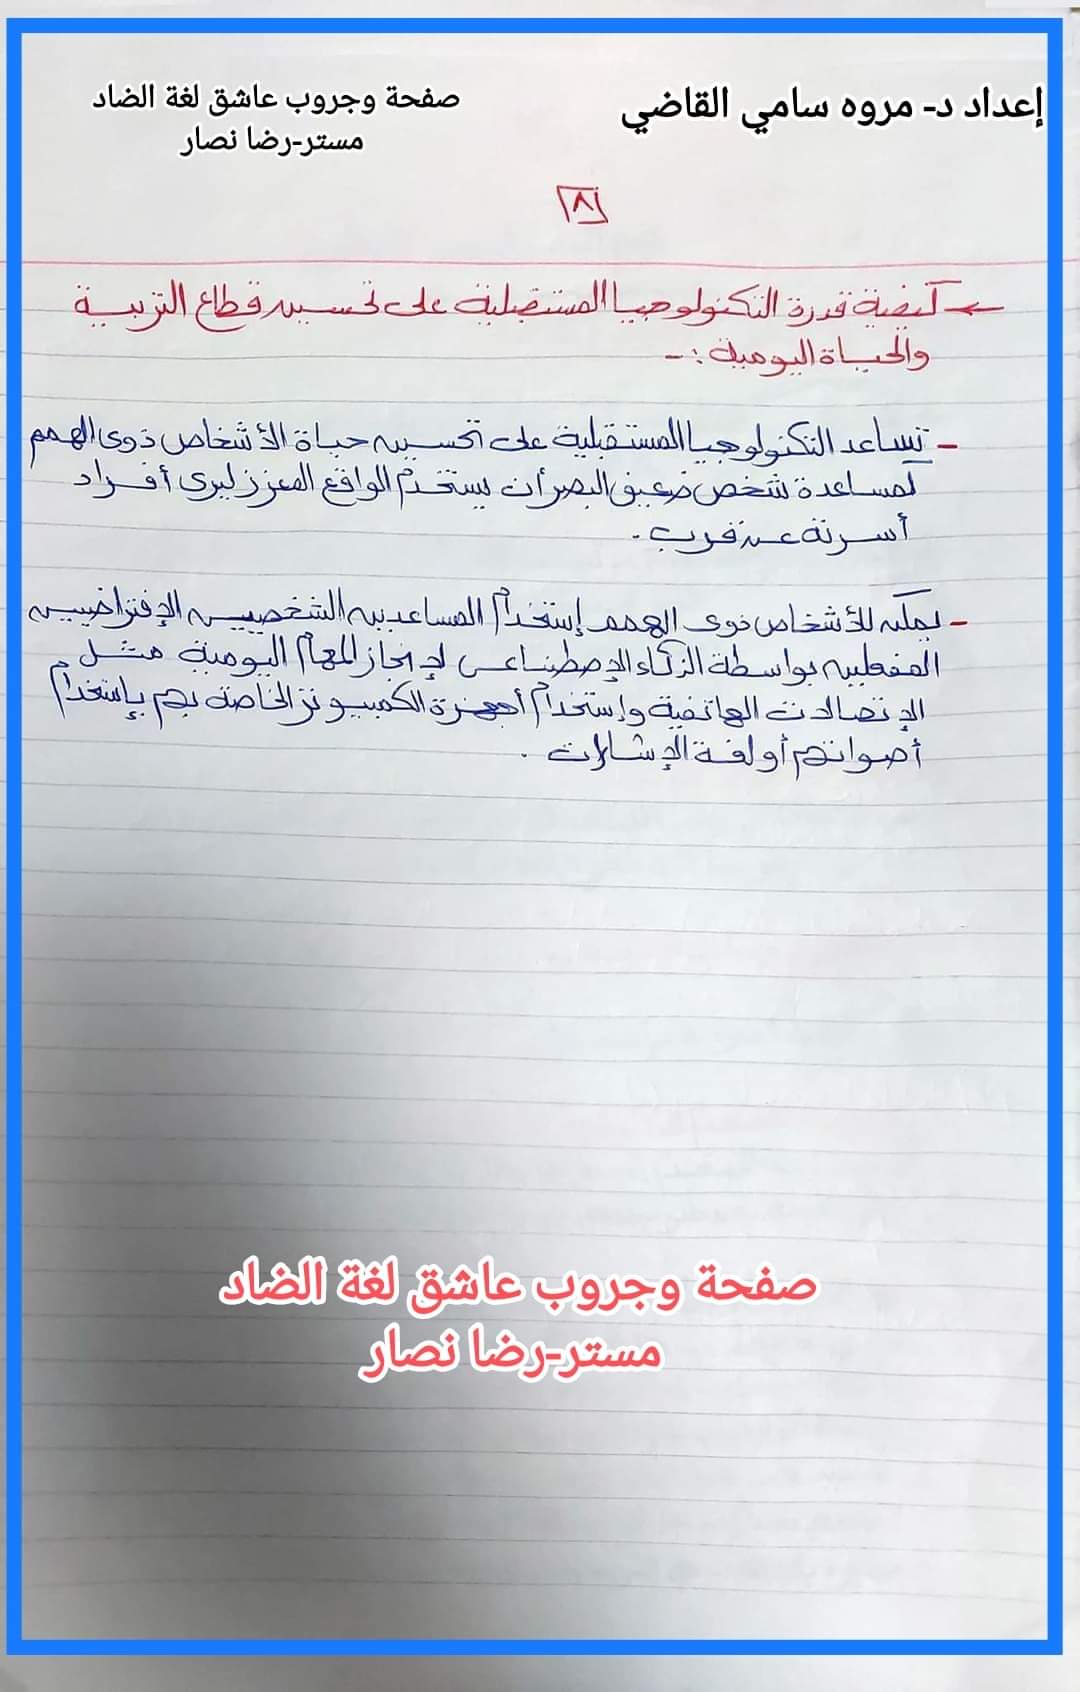 إعداد د- مروه سامي القاضي
صفحة وجروب عاشق لغة الضاد
مستر-رضا نصار
٨
← كيفية قدرة التكنولوجيا المستقبلية على تحسين قطاع التربية
والحياة اليومية :-
- تساعد التكنولوجيا المستقبلية على تحسين حياة الأشخاص ذوى الهمم
لمساعدة شخص ضعيف البصر أن يستخدم الواقع المعزز ليرى أفراد
أسرتة عن قرب .
- يمكن للأشخاص ذوى الهمم إستخدام المساعدين الشخصيين الإفتراضيين
المفعلين بواسطة الذكاء الإصطناعى لإنجاز المهام اليومية مثل
الإتصالات الهاتفية وإستخدام أجهزة الكمبيوتر الخاصة بهم بإستخدام
أصواتهم أو لغة الإشارات .
صفحة وجروب عاشق لغة الضاد
مستر-رضا نصار